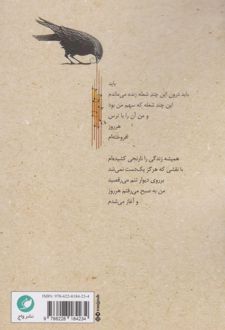 باید
باید درون این چند شعله زنده می‌ماندم
این چند شعله که سهم من بود
و من آن را با ترس
هر روز
افروخته‌ام
همیشه زندگی را نارنجی کشیده‌ام
با نقشی که هرگز یک‌دست نمی‌شد
بر روی دیوار تنم می‌رقصید
من به صبح می‌رفتم هر روز
و آغاز می‌شدم
ISBN: 978-622-8184-23-4
9 786228 184234